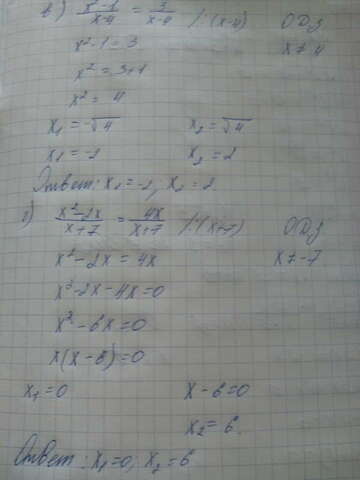 в) x²-1/x-4 = 3/x-4 /·(x-4) ОДЗ
x²-1=3 x≠4
x²=3+1
x²=4
x₁=-√4 x₂=√4
x₁=-2 x₂=2
Ответ: x₁=-2; x₂=2
г) x²-2x/x+7 = 4x/x+7 /·(x+7) ОДЗ
x²-2x=4x x≠-7
x²-2x-4x=0
x²-6x=0
x(x-6)=0
x₁=0 x-6=0
x₂=6
Ответ: x₁=0, x₂=6